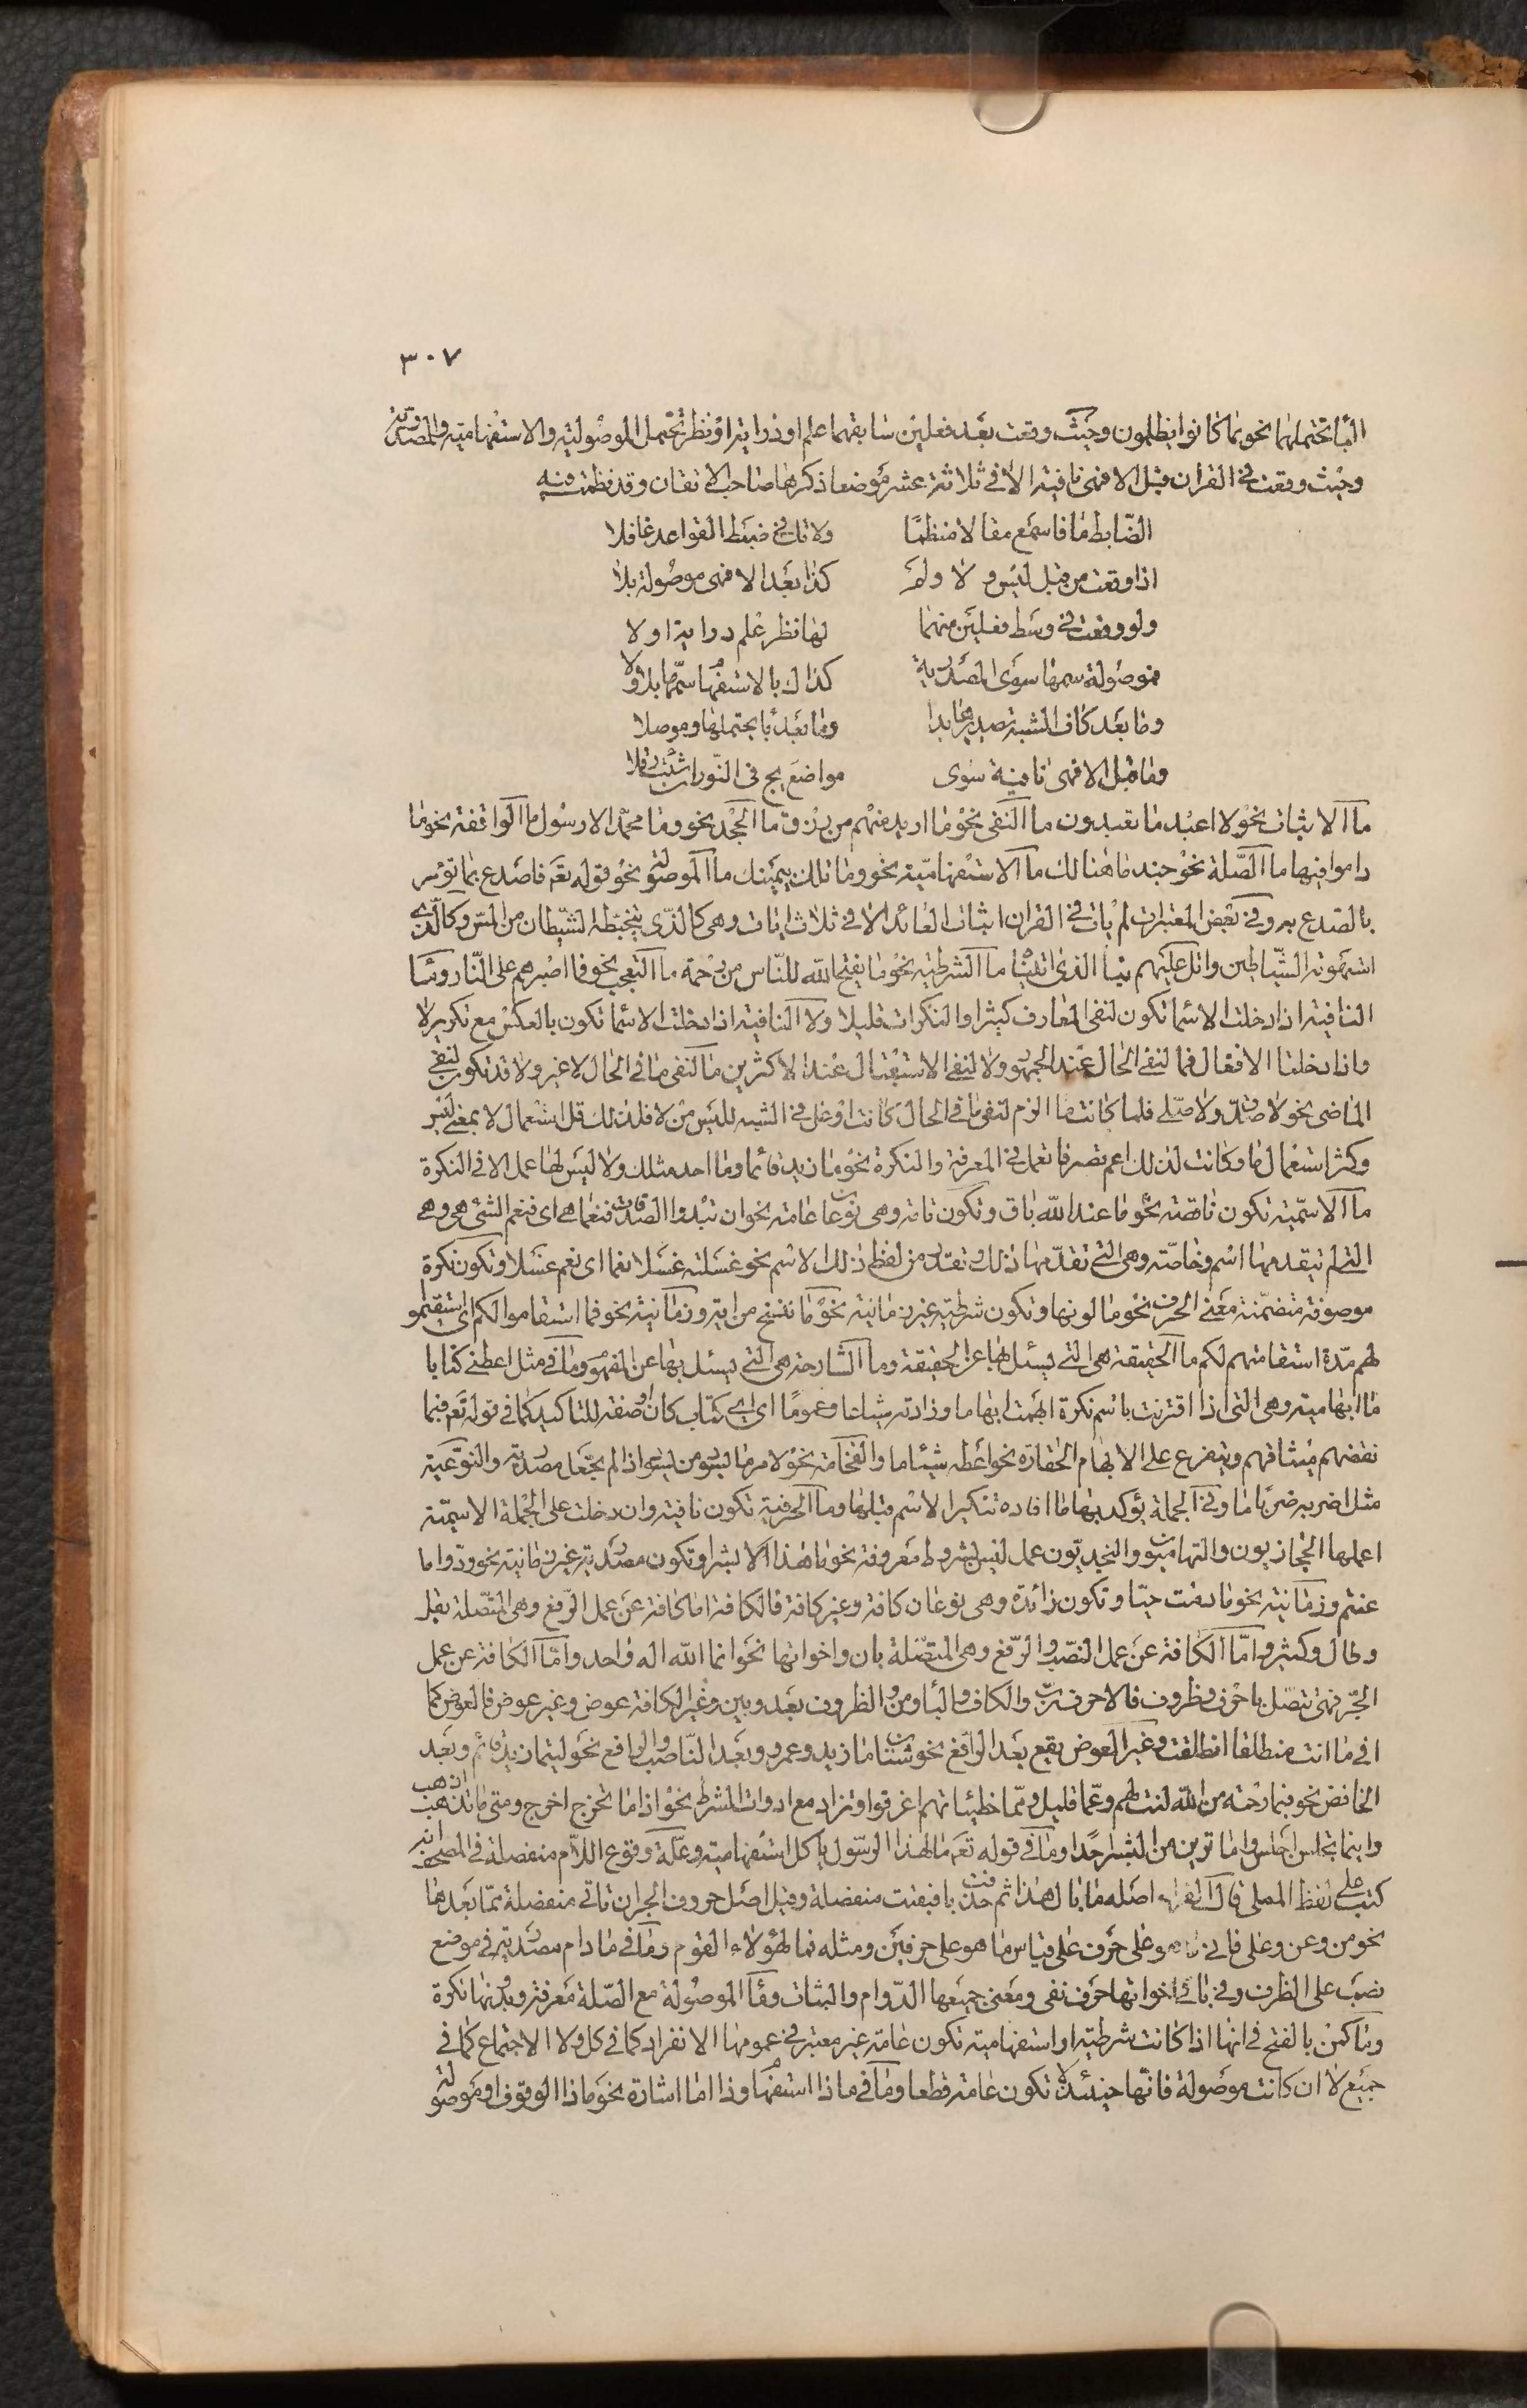 ٣٠٧
الباء تحتملهما نحو بما كانوا يظلمون وحيث وقعت بعد فعلين سابقهما علم او دراية او نظر تحتمل الموصولية والاستفهامية والمصدرية
وحيث وقعت في القران قبل الا فهى نافية الا في ثلاثة عشر موضعا ذكرها صاحب الاتقان وقد نظمت فيه
الضّابط ما فاسمع مقالا منظما ولا تك في ضبط القواعد غافلا
اذا وقعت من قبل ليس و لا ولم كذا بعد الا فهى موصولة بلا
ولو وقعت في وسط فعلين منهما لها نظر علم دراية او لا
فموصولة سمها سوى المصدرية كذاك بالاستفهام سمها بلا ولا
وما بعد كاف الشبه تصديرها بدا وما بعد با يحتملها وموصلا
وما قبل الا فهى نافية سوى مواضع يج في النورات شئت قلا
ما الاثبات نحو لا اعبد ما تعبدون ما النفى نحو ما اريد منهم من رزق وما الجحد نحو وما محمّد الا رسول ما الواقفة نحو ما
داموا فيها ما الصّلة نحو جند ما هنالك ما الاستفهاميّة نحو وما تلك بيمينك ما الموصولة نحو قوله تعم فاصدع بما تؤمر
بالصدع به وفي بعض المعتبرات لم يات في القران اثبات العائد الا في ثلاث ايات وهى كالذّى يتخبّطه الشّيطان من المسّ وكالّذى
استهوته الشّياطين واتل عليهم نبا الذى اتيناه ما الشرطية نحو ما يفتح الله للنّاس من رحمة ما التعجب نحو فما اصبرهم على النّار وما
النافية اذا دخلت الاسما تكون لنفى المعارف كثيرا والنكرات قليلا ولا النافية اذا دخلت الاسما تكون بالعكس مع تكرير لا
واذا دخلتا الافعال فما لنفى الحال عند الجمهور ولا لنفى الاستقبال عند الاكثرين ما لنفى ما في الحال لا غير ولا قد تكون لنفى
الماضى نحو لا صدّق ولا صلى فلما كانت ما الزم لنفى ما في الحال كانت اوغل في الشبه لليس من لا فلذلك قل استعمال لا بمعنى ليس
وكثر استعمال ما وكانت لذلك اعم تصرفا تعمل في المعرفة والنكرة نحو ما زيد قائما وما احد مثلك ولا ليس لها عمل الا في النكرة
ما الاسميّة تكون ناقصة نحو ما عند الله باق وتكون تامة وهى نوعان عامة نحو ان تبدوا الصدقات فنعما هى اى فنعم الشئ هى وهى
التى لم يتقدمها اسم وخاصّة وهى التى تقدّمها ذلك وتقدر من لفظ ذلك الاسم نحو غسلته غسلا نعما اى نعم غسلا وتكون نكرة
موصوفة متضمّنة معنى الحرف نحو ما لونها وتكون شرطية غير زمانية نحو ما ننسخ من اية وزمانية نحو فما استقاموا لكم اى استقيموا
لهم مدّة استقامتهم لكم ما الحقيقة هى التى يسئل بها عن الحقيقة وما الشارحة هى التى يسئل بها عن المفهوم وما في مثل اعطنى كتابا
ما ابهامية وهى التى اذا اقترنت باسم نكرة ابهمت ابهاما وزادته شياعا وعموما اى اى كتاب كان او صفة للتاكيد كما في قوله تعم فبما
نقضهم ميثاقهم ويتفرع على الابهام الحقارة نحو اعطه شيئا ما والفخامة نحو لامر ما ليسود من يسود اذا لم يجعل مصدرية والنوعية
مثل اضربه ضربا ما وفي الجملة يؤكد بها ما افاده تنكير الاسم قبلها وما الحرفية تكون نافية وان دخلت على الجملة الاسميّة
اعملها الحجازيون والتهاميون والنجديّون عمل ليس بشروط معروفة نحو ما هذا الا بشرا وتكون مصدرية غير زمانية نحو ودّوا ما
عنتم وزمانية نحو ما دمت حيّا وتكون زائدة وهى نوعان كافة وغير كافة فالكافة اما كافة عن عمل الرّفع وهى المتّصلة بقل
وطال وكثر وامّا الكافة عن عمل النصب والرّفع وهى المتصّلة بان واخواتها نحو انما الله اله واحد وامّا الكافة عن عمل
الجرّ فهى تتصل باحرف وظروف فالاحرف ربّ والكاف والباء ومن والظروف بعد وبين وغير الكافة عوض وغير عوض فالعوض كما
في اما انت منطلقا انطلقت وغير العوض يقع بعد الرّافع نحو شتان ما زيد وعمرو وبعد النّاصب والرافع نحو ليتما زيد قائم وبعد
الخافض نحو فبما رحمة من الله لنت لهم وعمّا قليل وممّا خطيئاتهم اغرقوا وتزاد مع ادوات الشرط نحو اذا ما تخرج اخرج ومتى ما تذهب اذهب
واينما تجلس اجلس واما ترين من البشر احدا وما في قوله تعم مال هذا الرّسول ياكل استفهامية وعلّة وقوع اللّام منفصلة في المصحف انه
كتب على لفظ المملى قال الفراء اصله ما بال هذا ثم حذفت با فبقيت منفصلة وقيل اصل حروف الجر ان تاتى منفصلة ممّا بعدها
نحو من وعن وعلى فاتى ما هو على حرف على قياس ما هو على حرفين ومثله فما لهؤلاء القوم وما في ما دام مصدرية في موضع
نصب على الظرف وفي باقى اخواتها حرف نفى ومعنى جميعها الدّوام والثبات وما الموصولة مع الصّلة معرفة وبدونها نكرة
وما كمن بالفتح في انها اذا كانت شرطية او استفهامية تكون عامة غير معتبر في عمومها الانفراد كما في كل ولا الاجتماع كما في
جميع لا ان كانت موصولة فانّها حينئذ لا تكون عامة قطعا وما في ماذا استفهام وذا اما اشارة نحو ماذا الوقوف او موصولة